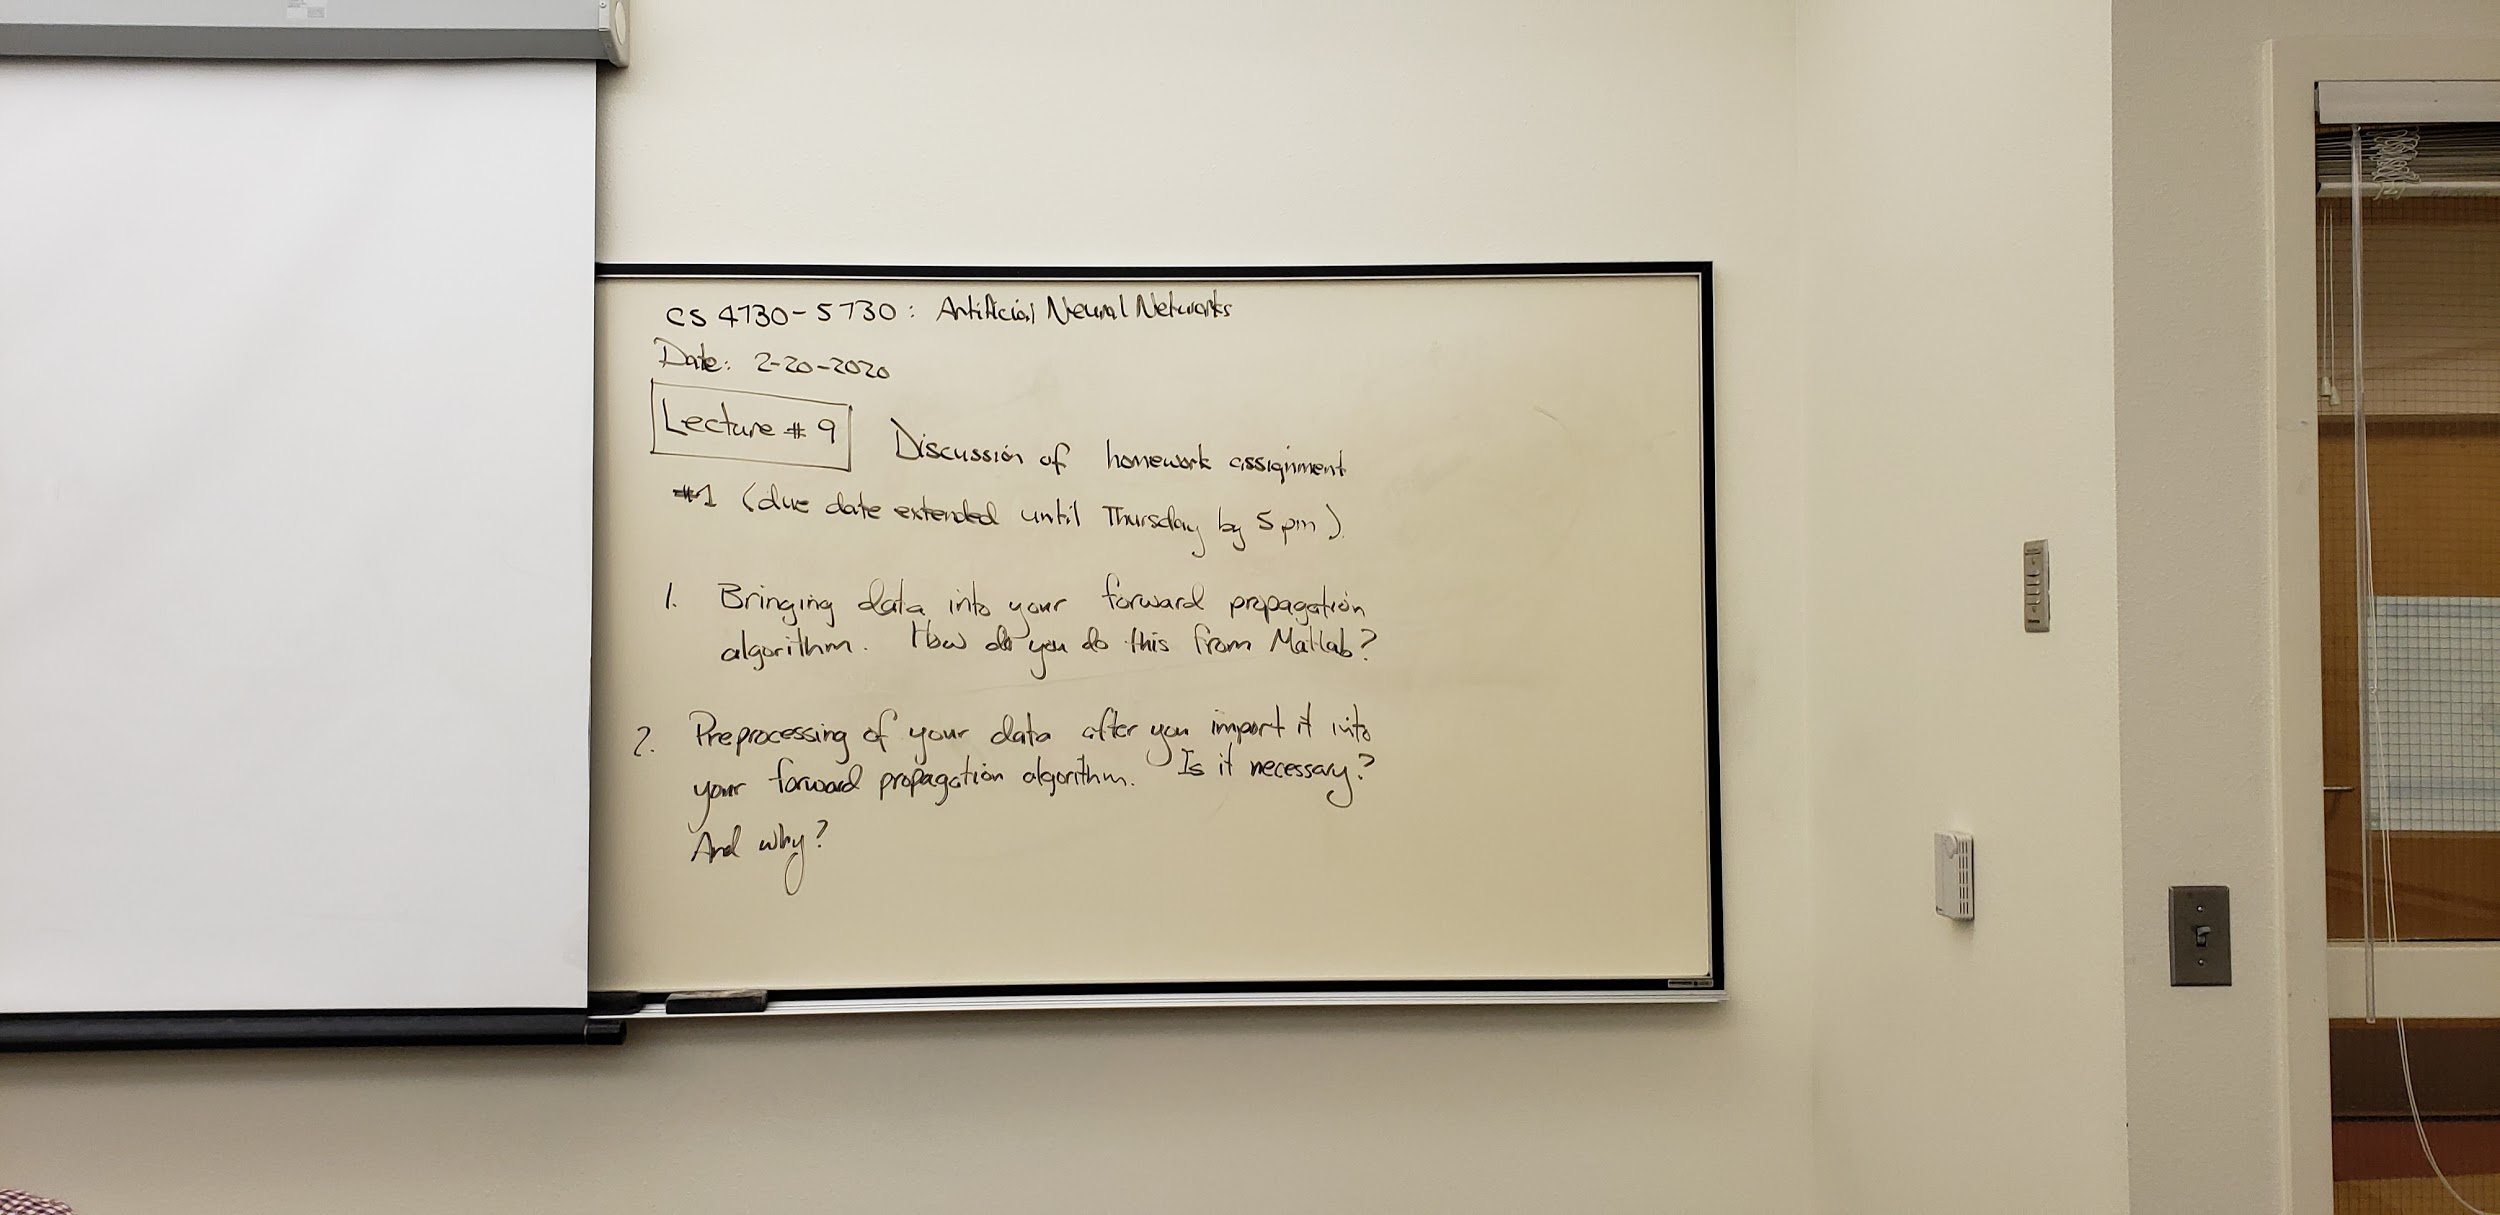 CS 4730-5730: Artificial Neural Networks
Date: 2-20-2020
Lecture # 9 Discussion of homework assignment
#1 (due date extended until Thursday by 5 pm)
1. Bringing data into your forward propagation
algorithm. How do you do this from Matlab?
2. Preprocessing of your data after you import it into
your forward propagation algorithm. Is it necessary?
And why?